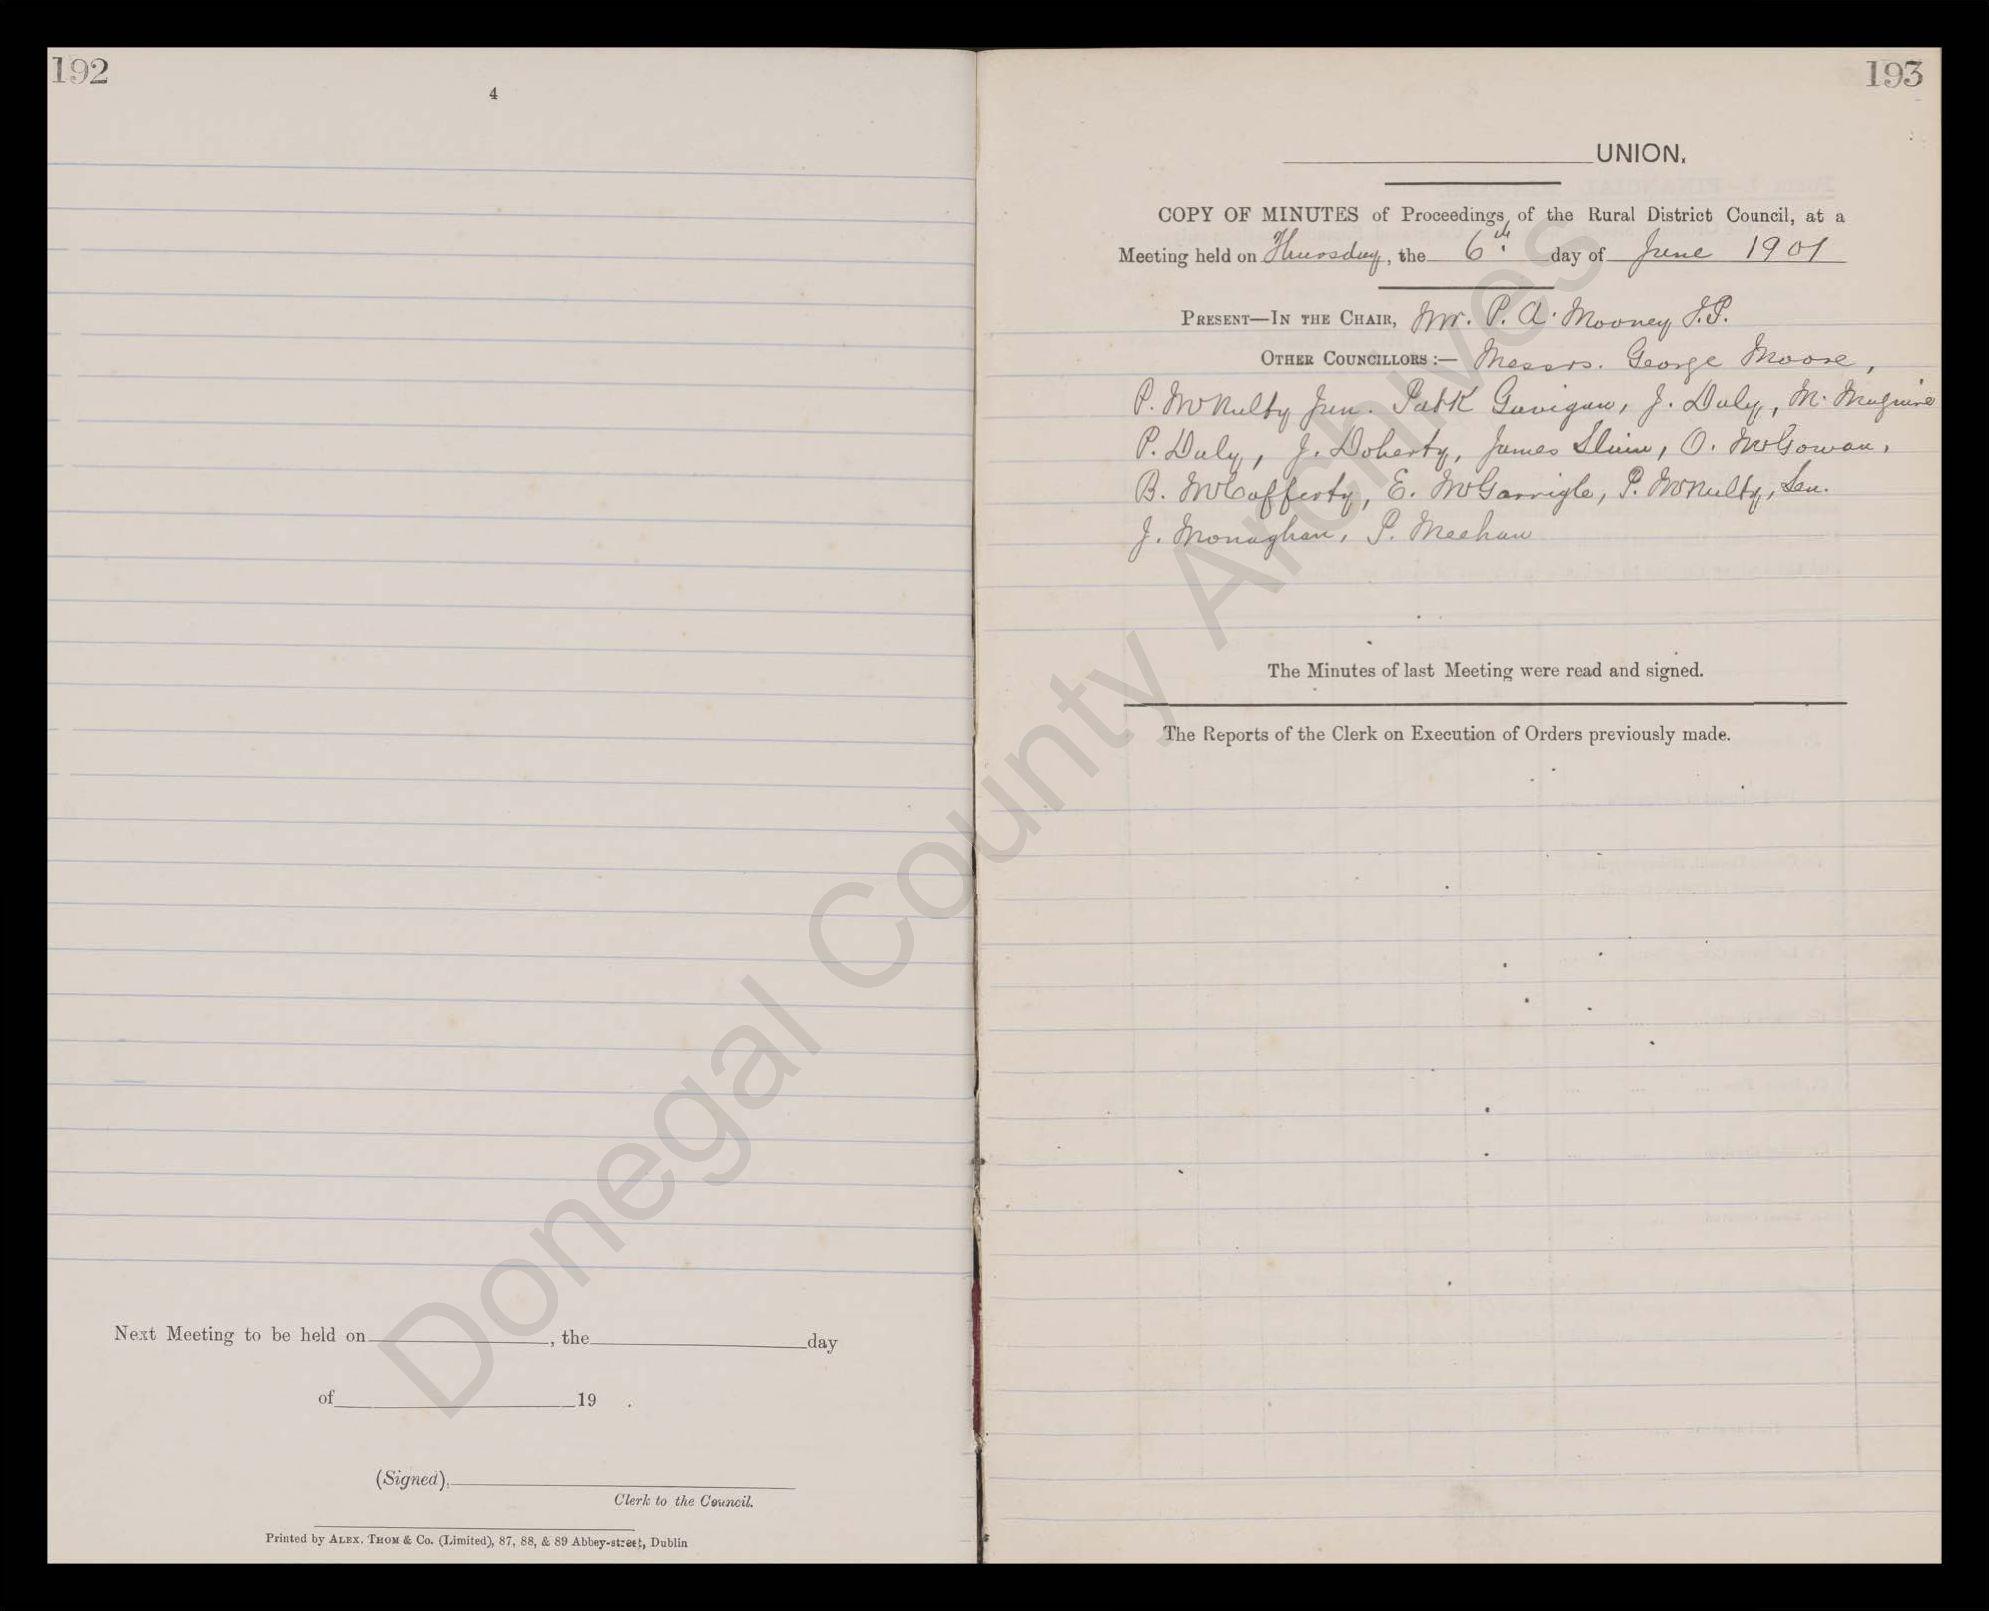 192
4
Next Meeting to be held on , the day
of 19 .
(Signed),
Clerk to the Council.
Printed by ALEX. THOM & Co. (Limited), 87, 88, & 89 Abbey-street, Dublin
193
UNION.
COPY OF MINUTES of Proceedings of the Rural District Council, at a
Meeting held on Thursday, the 6th day of June 1901
PRESENT—IN THE CHAIR, Mr. P. A. Mooney J.P.
OTHER COUNCILLORS :— Messrs. George Moore,
P. McNulty Jun. Patk Gavigan, J. Daly, M. Maguire
P. Daly, J. Doherty, James Slevin, O. McGowan,
B. McCafferty, E. McGarrigle, P. McNulty, Sen.
J. Monaghan, P. Meehan
The Minutes of last Meeting were read and signed.
The Reports of the Clerk on Execution of Orders previously made.
Donegal County Archives